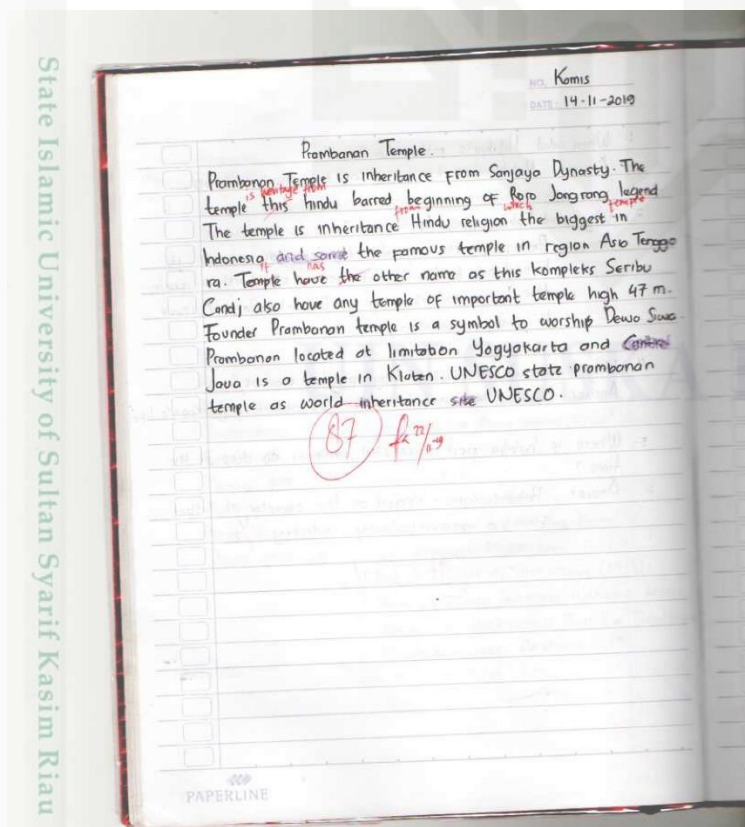 State Islamic University of Sultan Syarif Kasim Riau
NO. Kamis
DATE: 14-11-2019
Prambanan Temple.
Prambanan Temple is inheritance from Sanjaya Dynasty. The
is heritage from
temple this hindu barred beginning of Roro Jongrang legend
from which temple
The temple is inheritance Hindu religion the biggest in
Indonesia and some the famous temple in region Asia Tengga
it has
ra. Temple have the other name as this kompleks Seribu
Candi also have any temple of important temple high 47 m.
Founder Prambanan temple is a symbol to worship Dewa Siwa.
Prambanan located at limitabon Yogyakarta and Central
Java is a temple in Klaten. UNESCO state prambanan
temple as world inheritance site UNESCO.
87
22/11-19
PAPERLINE